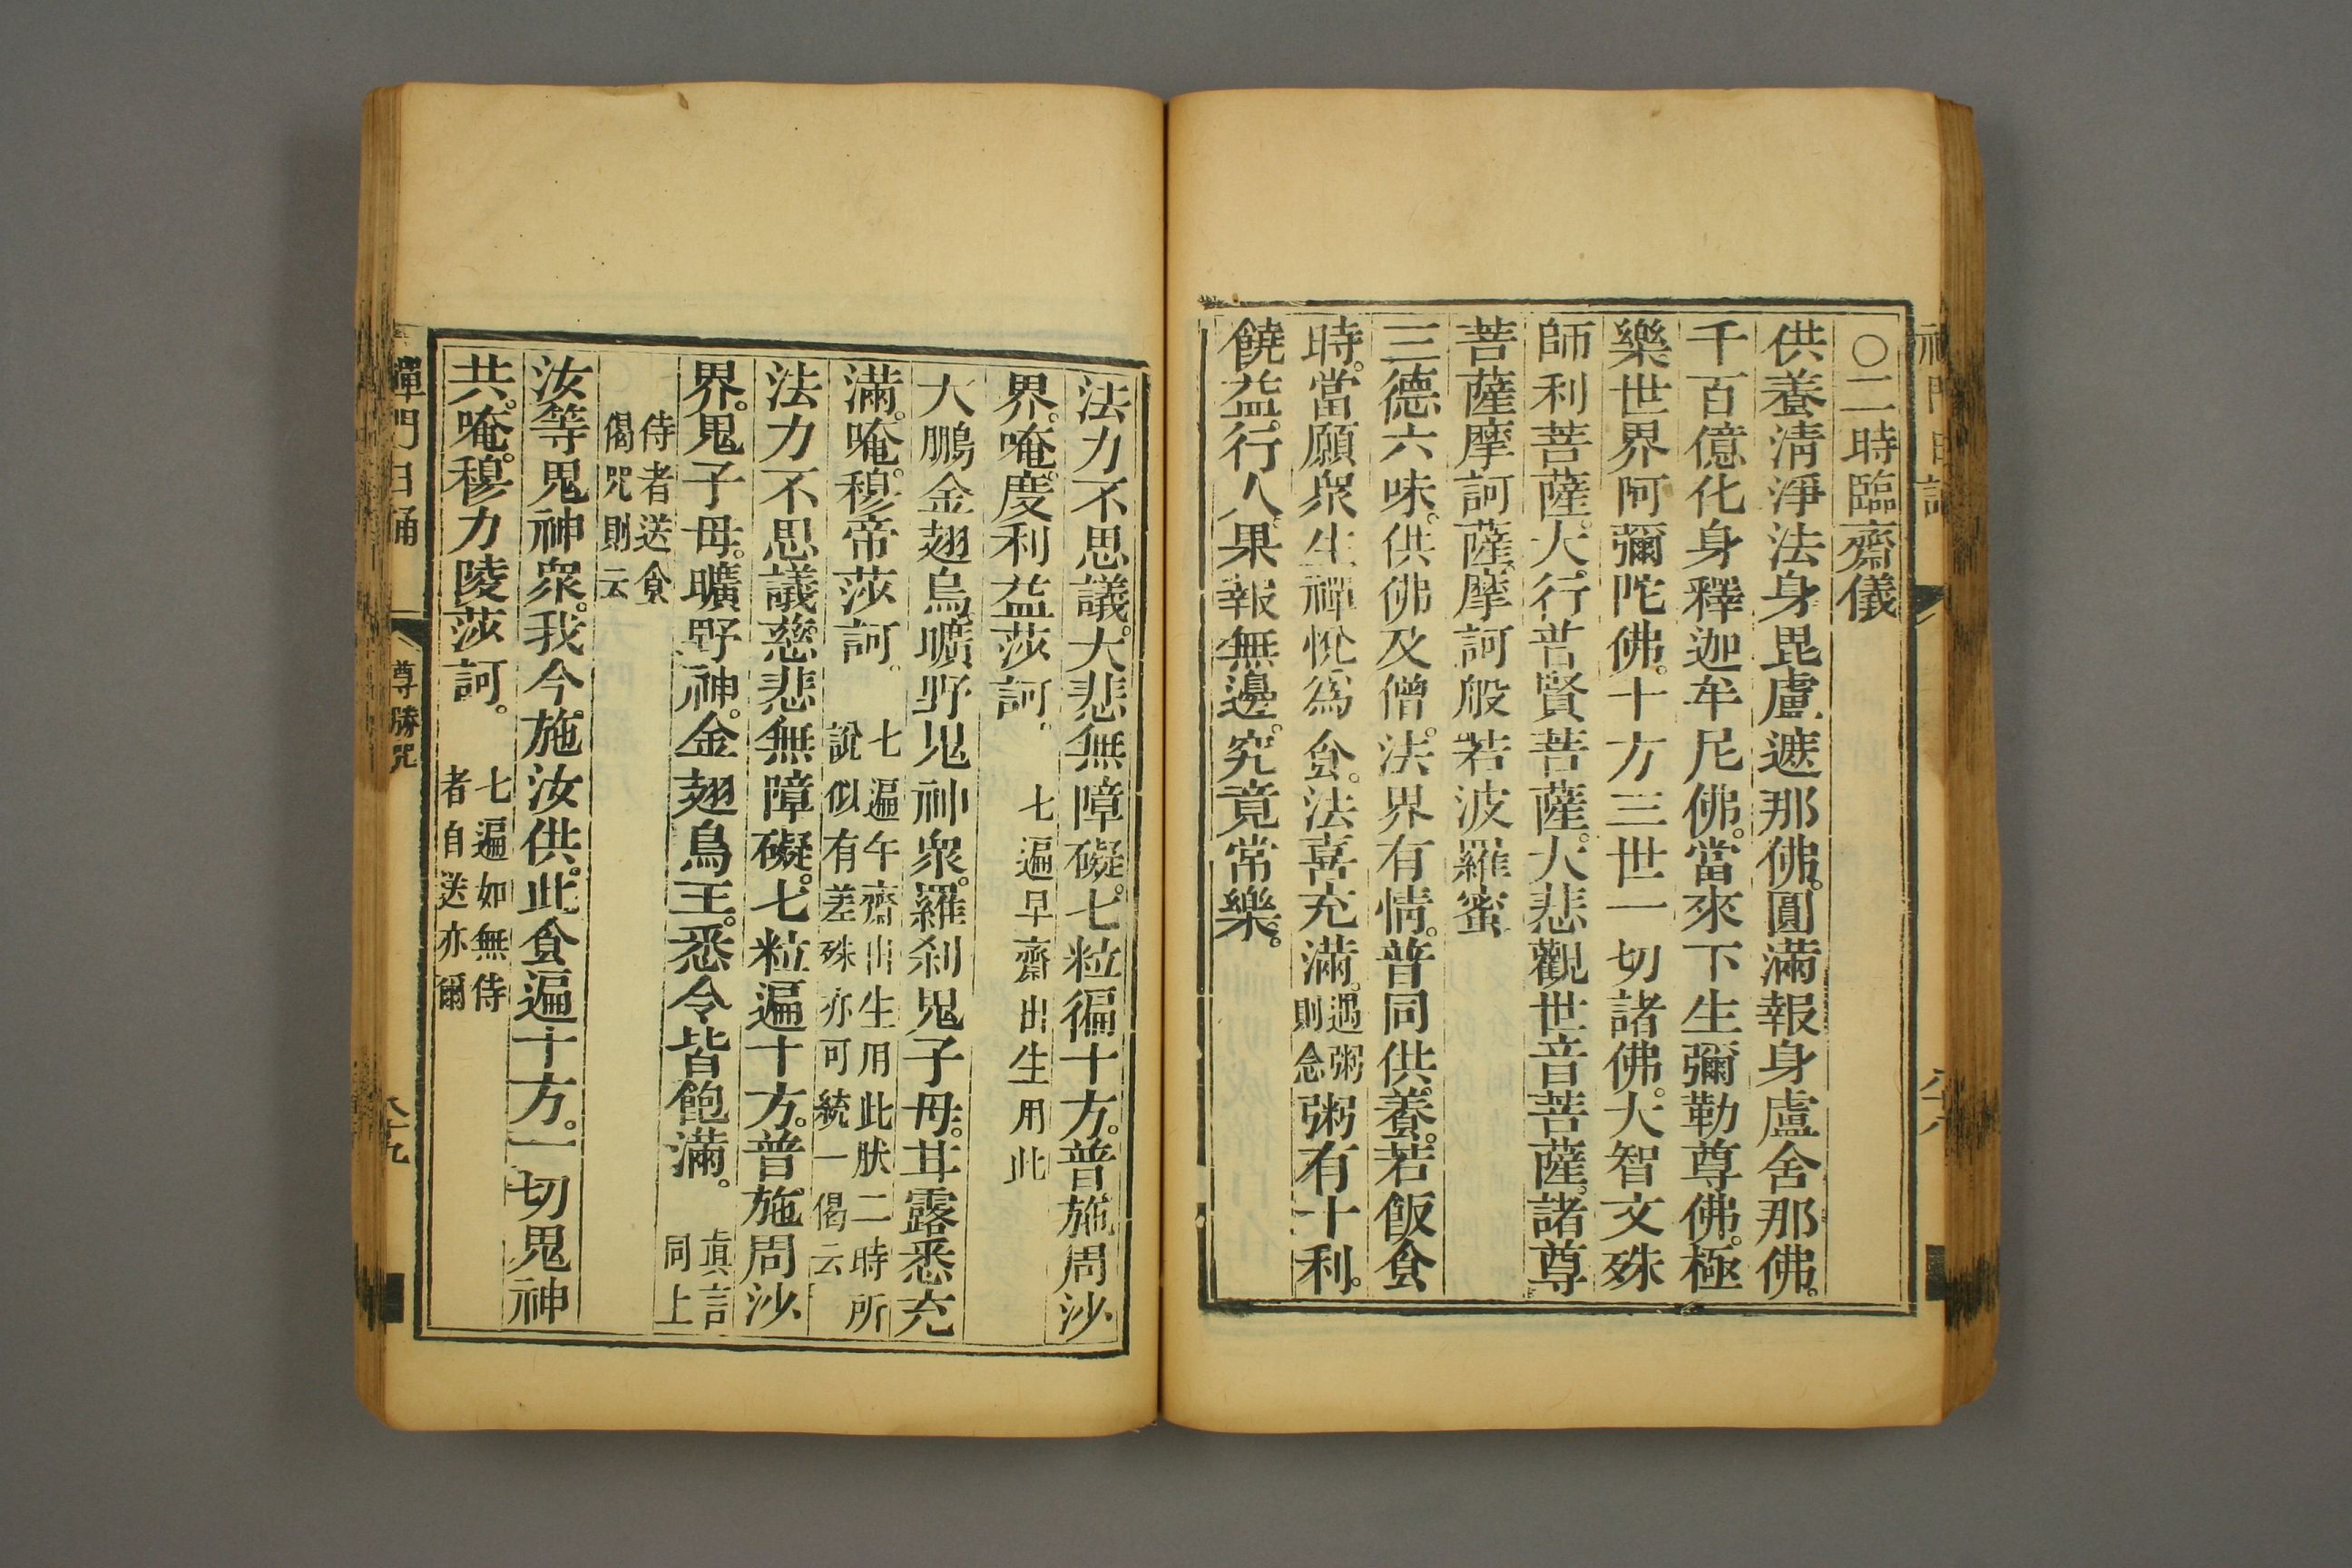 ○二時臨齋儀
供養清淨法身毘盧遮那佛。圓滿報身盧舍那佛。
千百億化身釋迦牟尼佛。當來下生彌勒尊佛。極
樂世界阿彌陀佛。十方三世一切諸佛。大智文殊
師利菩薩。大行普賢菩薩。大悲觀世音菩薩。諸尊
菩薩摩訶薩。摩訶般若波羅蜜
三德六味。供佛及僧。法界有情。普同供養。若飯食
時。當願衆生禪悅爲食。法喜充滿。遇粥則念粥有十利。
饒益行人。果報無邊。究竟常樂。
法力不思議。大悲無障礙。七粒徧十方。普施周沙
界。唵。度利益莎訶。七遍早齋出生用此
大鵬金翅鳥。曠野鬼神衆。羅刹鬼子母。甘露悉充
滿。唵。穆帝莎訶。七遍午齋出生用此肰二時所說似有差殊亦可統一偈云
法力不思議。慈悲無障礙。七粒遍十方。普施周沙
界。鬼子母。曠野神。金翅鳥王。悉令皆飽滿。眞言同上
侍者送食偈咒則云
汝等鬼神衆。我今施汝供。此食遍十方。一切鬼神
共。唵。穆力陵莎訶。七遍如無侍者自送亦爾
禪門日誦
尊勝咒
八十九